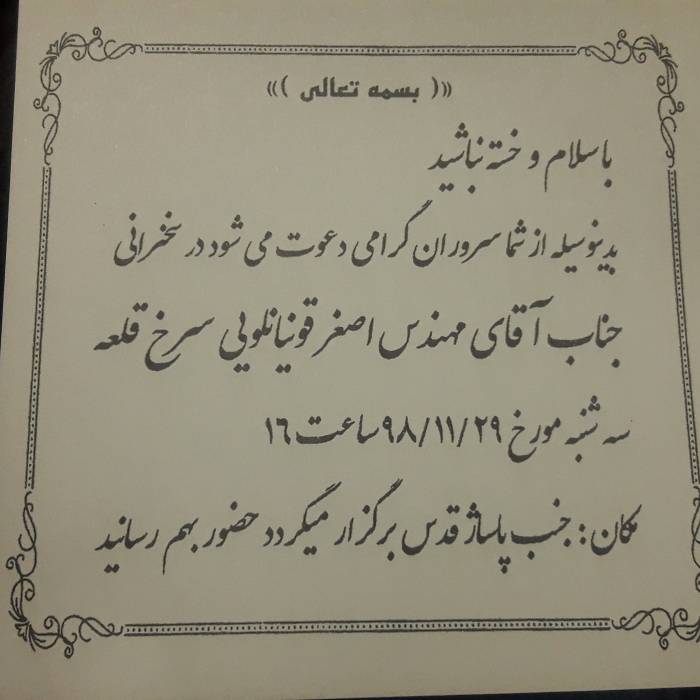 «( بسمه تعالی )»
با سلام و خسته نباشید
بدینوسیله از شما سروران گرامی دعوت می شود در سخنرانی
جناب آقای مهندس اصغر قونیانلویی سرخ قلعه
سه شنبه مورخ ۹۸/۱۱/۲۹ ساعت ۱۶
مکان : جنب پاساژ قدس برگزار میگردد حضور بهم رسانید